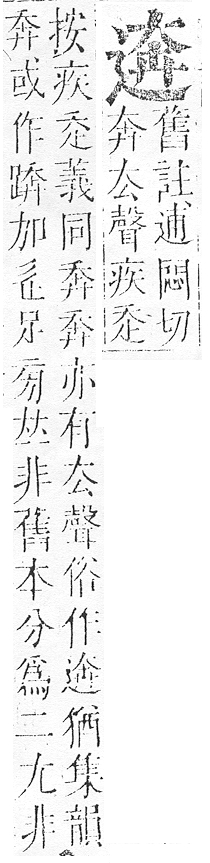 逩
舊註逋悶切
奔厺聲疾走
按疾走義同奔奔亦有厺聲俗作逩猶集韻
奔或作加辵足旁𠀤非舊本分爲二尤非